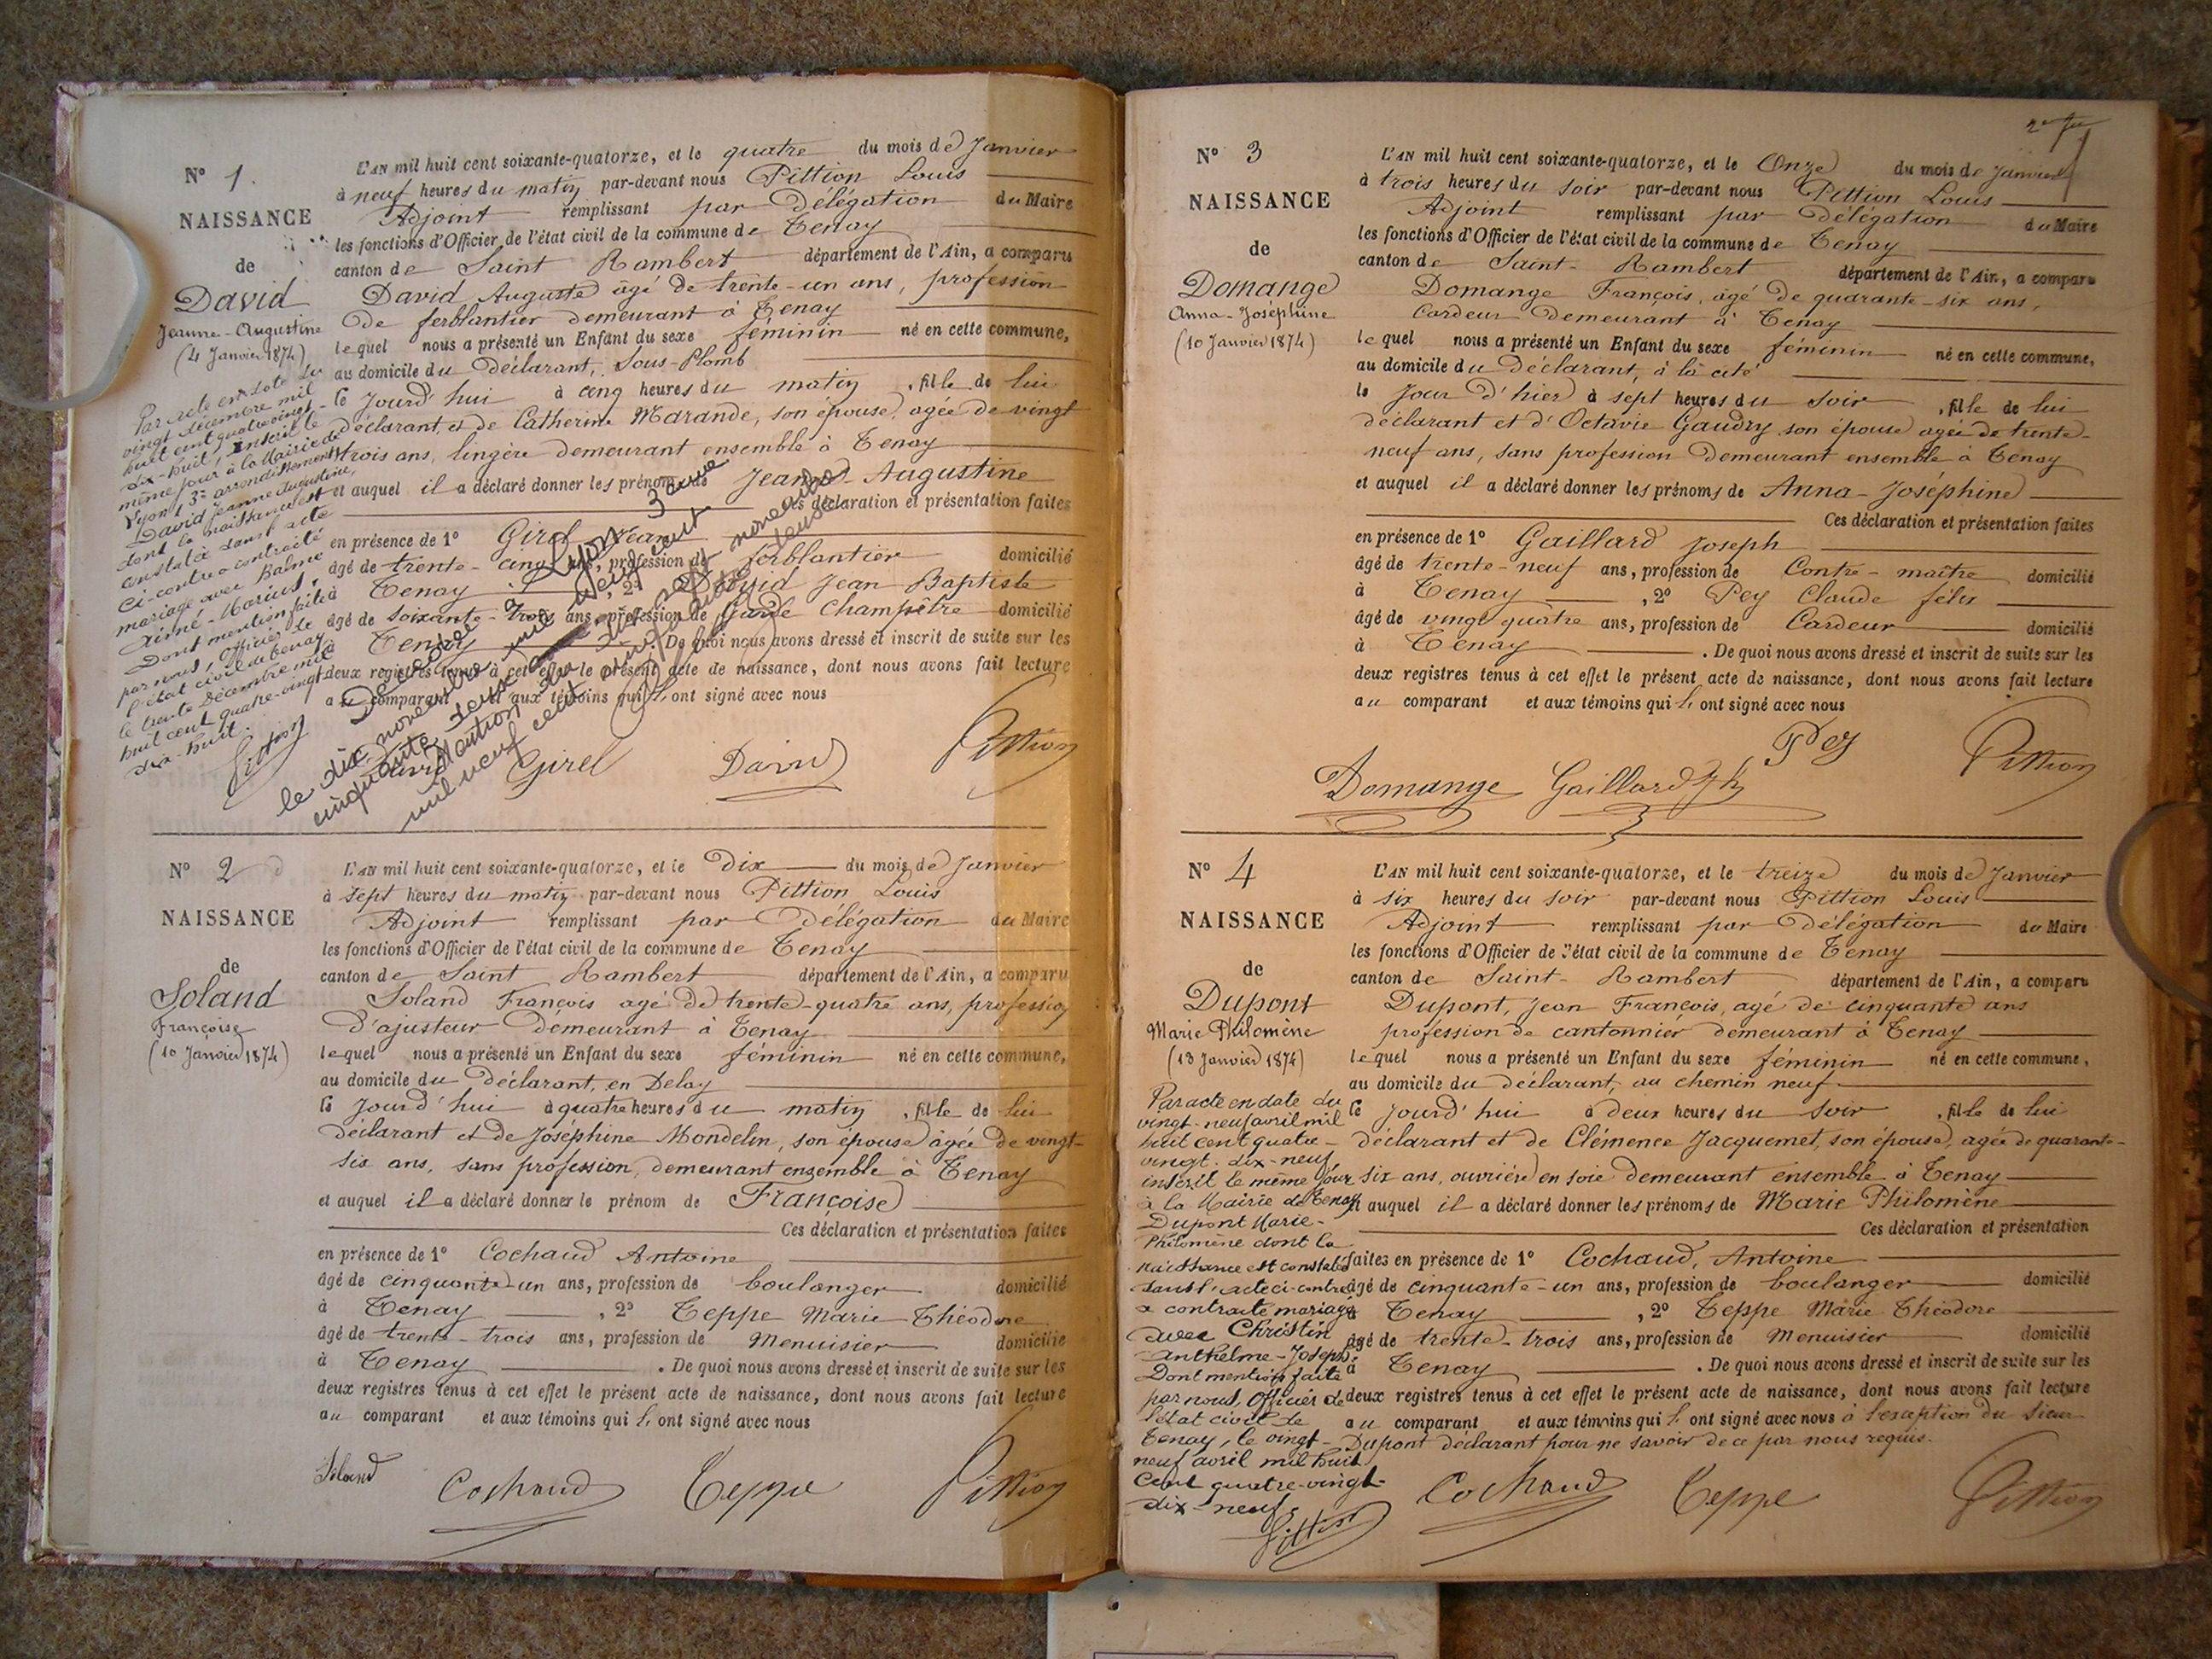 N° 1.
NAISSANCE
de
David
Jeanne-Augustine
(4 Janvier 1874)
Par acte en date du
vingt décembre mil
huit cent quatre vingt-
dix-huit, inscrit le
même jour à la Mairie de
Lyon 3e arrondissement,
David Jeanne Augustine,
dont la naissance est
constatée dans l'acte
ci-contre a contracté
mariage avec Balme
Aimé-Marius.
Dont mention faite
par nous, Officier de
l'état civil de Tenay
le trente Décembre mil
huit cent quatre-vingt-
dix-huit.
Pittion
L'AN mil huit cent soixante-quatorze, et le quatre du mois de Janvier
à neuf heures du matin par-devant nous Pittion Louis
Adjoint remplissant par Délégation du Maire
les fonctions d'Officier de l'état civil de la commune de Tenay
canton de Saint Rambert département de l'Ain, a comparu
David Auguste âgé de trente-un ans, profession
de ferblantier demeurant à Tenay
lequel nous a présenté un Enfant du sexe féminin né en cette commune,
au domicile du Déclarant, Sous-Plomb
le Jourd'hui à cinq heures du matin, fille de lui
déclarant, et de Catherine Marande, son épouse, agée de vingt
trois ans, lingère demeurant ensemble à Tenay
et auquel il a déclaré donner les prénoms de Jeanne-Augustine
Ces déclaration et présentation faites
en présence de 1° Girel Jean
âgé de trente-cinq ans, profession de ferblantier domicilié
à Tenay, 2° David Jean Baptiste
âgé de soixante-trois ans, profession de Garde Champêtre domicilié
à Tenay. De quoi nous avons dressé et inscrit de suite sur les
deux registres tenus à cet effet le présent acte de naissance, dont nous avons fait lecture
au comparant et aux témoins qui l'ont signé avec nous
Décédée à Lyon 3ème
le dix novembre mil neuf cent
cinquante deux
Mention du dix sept novembre
mil neuf cent cinquante deux
David Girel David Pittion
N° 2
NAISSANCE
de
Soland
Françoise
(10 Janvier 1874)
L'AN mil huit cent soixante-quatorze, et le Dix du mois de Janvier
à sept heures du matin par-devant nous Pittion Louis
Adjoint remplissant par Délégation du Maire
les fonctions d'Officier de l'état civil de la commune de Tenay
canton de Saint Rambert département de l'Ain, a comparu
Soland François agé de trente-quatre ans, profession
d'ajusteur Demeurant à Tenay
lequel nous a présenté un Enfant du sexe féminin né en cette commune,
au domicile du Déclarant, en Delay
le Jourd'hui à quatre heures du matin, fille de lui
déclarant et de Joséphine Mondelin, son épouse âgée de vingt-
six ans, sans profession, demeurant ensemble à Tenay
et auquel il a déclaré donner le prénom de Françoise
Ces déclaration et présentation faites
en présence de 1° Cochaud Antoine
âgé de cinquante-un ans, profession de boulanger domicilié
à Tenay, 2° Teppe Marie Théodore
âgé de trente-trois ans, profession de Menuisier domicilié
à Tenay. De quoi nous avons dressé et inscrit de suite sur les
deux registres tenus à cet effet le présent acte de naissance, dont nous avons fait lecture
au comparant et aux témoins qui l'ont signé avec nous
Soland Cochaud Teppe Pittion
N° 3
NAISSANCE
de
Domange
Anna-Joséphine
(10 Janvier 1874)
L'AN mil huit cent soixante-quatorze, et le Onze du mois de Janvier
à trois heures du soir par-devant nous Pittion Louis
Adjoint remplissant par Délégation du Maire
les fonctions d'Officier de l'état civil de la commune de Tenay
canton de Saint-Rambert département de l'Ain, a comparu
Domange François, âgé de quarante-six ans,
Cardeur Demeurant à Tenay
lequel nous a présenté un Enfant du sexe féminin né en cette commune,
au domicile du Déclarant, à la cité
le Jour d'hier à sept heures du soir, fille de lui
déclarant et d'Octavie Gaudry son épouse agée de trente-
neuf ans, sans profession Demeurant ensemble à Tenay
et auquel il a déclaré donner les prénoms de Anna-Joséphine
Ces déclaration et présentation faites
en présence de 1° Gaillard Joseph
âgé de trente-neuf ans, profession de Contre-maître domicilié
à Tenay, 2° Pey Claude félix
âgé de vingt quatre ans, profession de Cardeur domicilié
à Tenay. De quoi nous avons dressé et inscrit de suite sur les
deux registres tenus à cet effet le présent acte de naissance, dont nous avons fait lecture
au comparant et aux témoins qui l'ont signé avec nous
Pey
Domange Gaillard Jh Pittion
N° 4
NAISSANCE
de
Dupont
Marie Philomène
(13 Janvier 1874)
Par acte en date du
vingt-neuf avril mil
huit cent quatre-
vingt-dix-neuf
inscrit le même jour
à la Mairie de Tenay
Dupont Marie-
Philomène dont la
naissance est constatée
dans l'acte ci-contre
a contracté mariage
avec Christin
Anthelme-Joseph.
Dont mention faite
par nous, Officier de
l'état civil de
Tenay, le vingt-
neuf avril mil huit
cent quatre-vingt-
dix-neuf.
Pittion
L'AN mil huit cent soixante-quatorze, et le treize du mois de Janvier
à six heures du soir par-devant nous Pittion Louis
Adjoint remplissant par Délégation du Maire
les fonctions d'Officier de l'état civil de la commune de Tenay
canton de Saint-Rambert département de l'Ain, a comparu
Dupont, Jean François, agé de cinquante ans
profession de cantonnier demeurant à Tenay
lequel nous a présenté un Enfant du sexe féminin né en cette commune,
au domicile du déclarant, au chemin neuf
le Jourd'hui à deux heures du soir, fille de lui
déclarant et de Clémence Jacquemet, son épouse, agée de quarante-
six ans, ouvrière en soie demeurant ensemble à Tenay
et auquel il a déclaré donner les prénoms de Marie Philomène
Ces déclaration et présentation
faites en présence de 1° Cochaud, Antoine
âgé de cinquante-un ans, profession de boulanger domicilié
à Tenay, 2° Teppe Marie Théodore
âgé de trente-trois ans, profession de Menuisier domicilié
à Tenay. De quoi nous avons dressé et inscrit de suite sur les
deux registres tenus à cet effet le présent acte de naissance, dont nous avons fait lecture
au comparant et aux témoins qui l'ont signé avec nous à l'exception du Sieur
Dupont déclarant pour ne savoir de ce par nous requis.
Cochaud Teppe Pittion